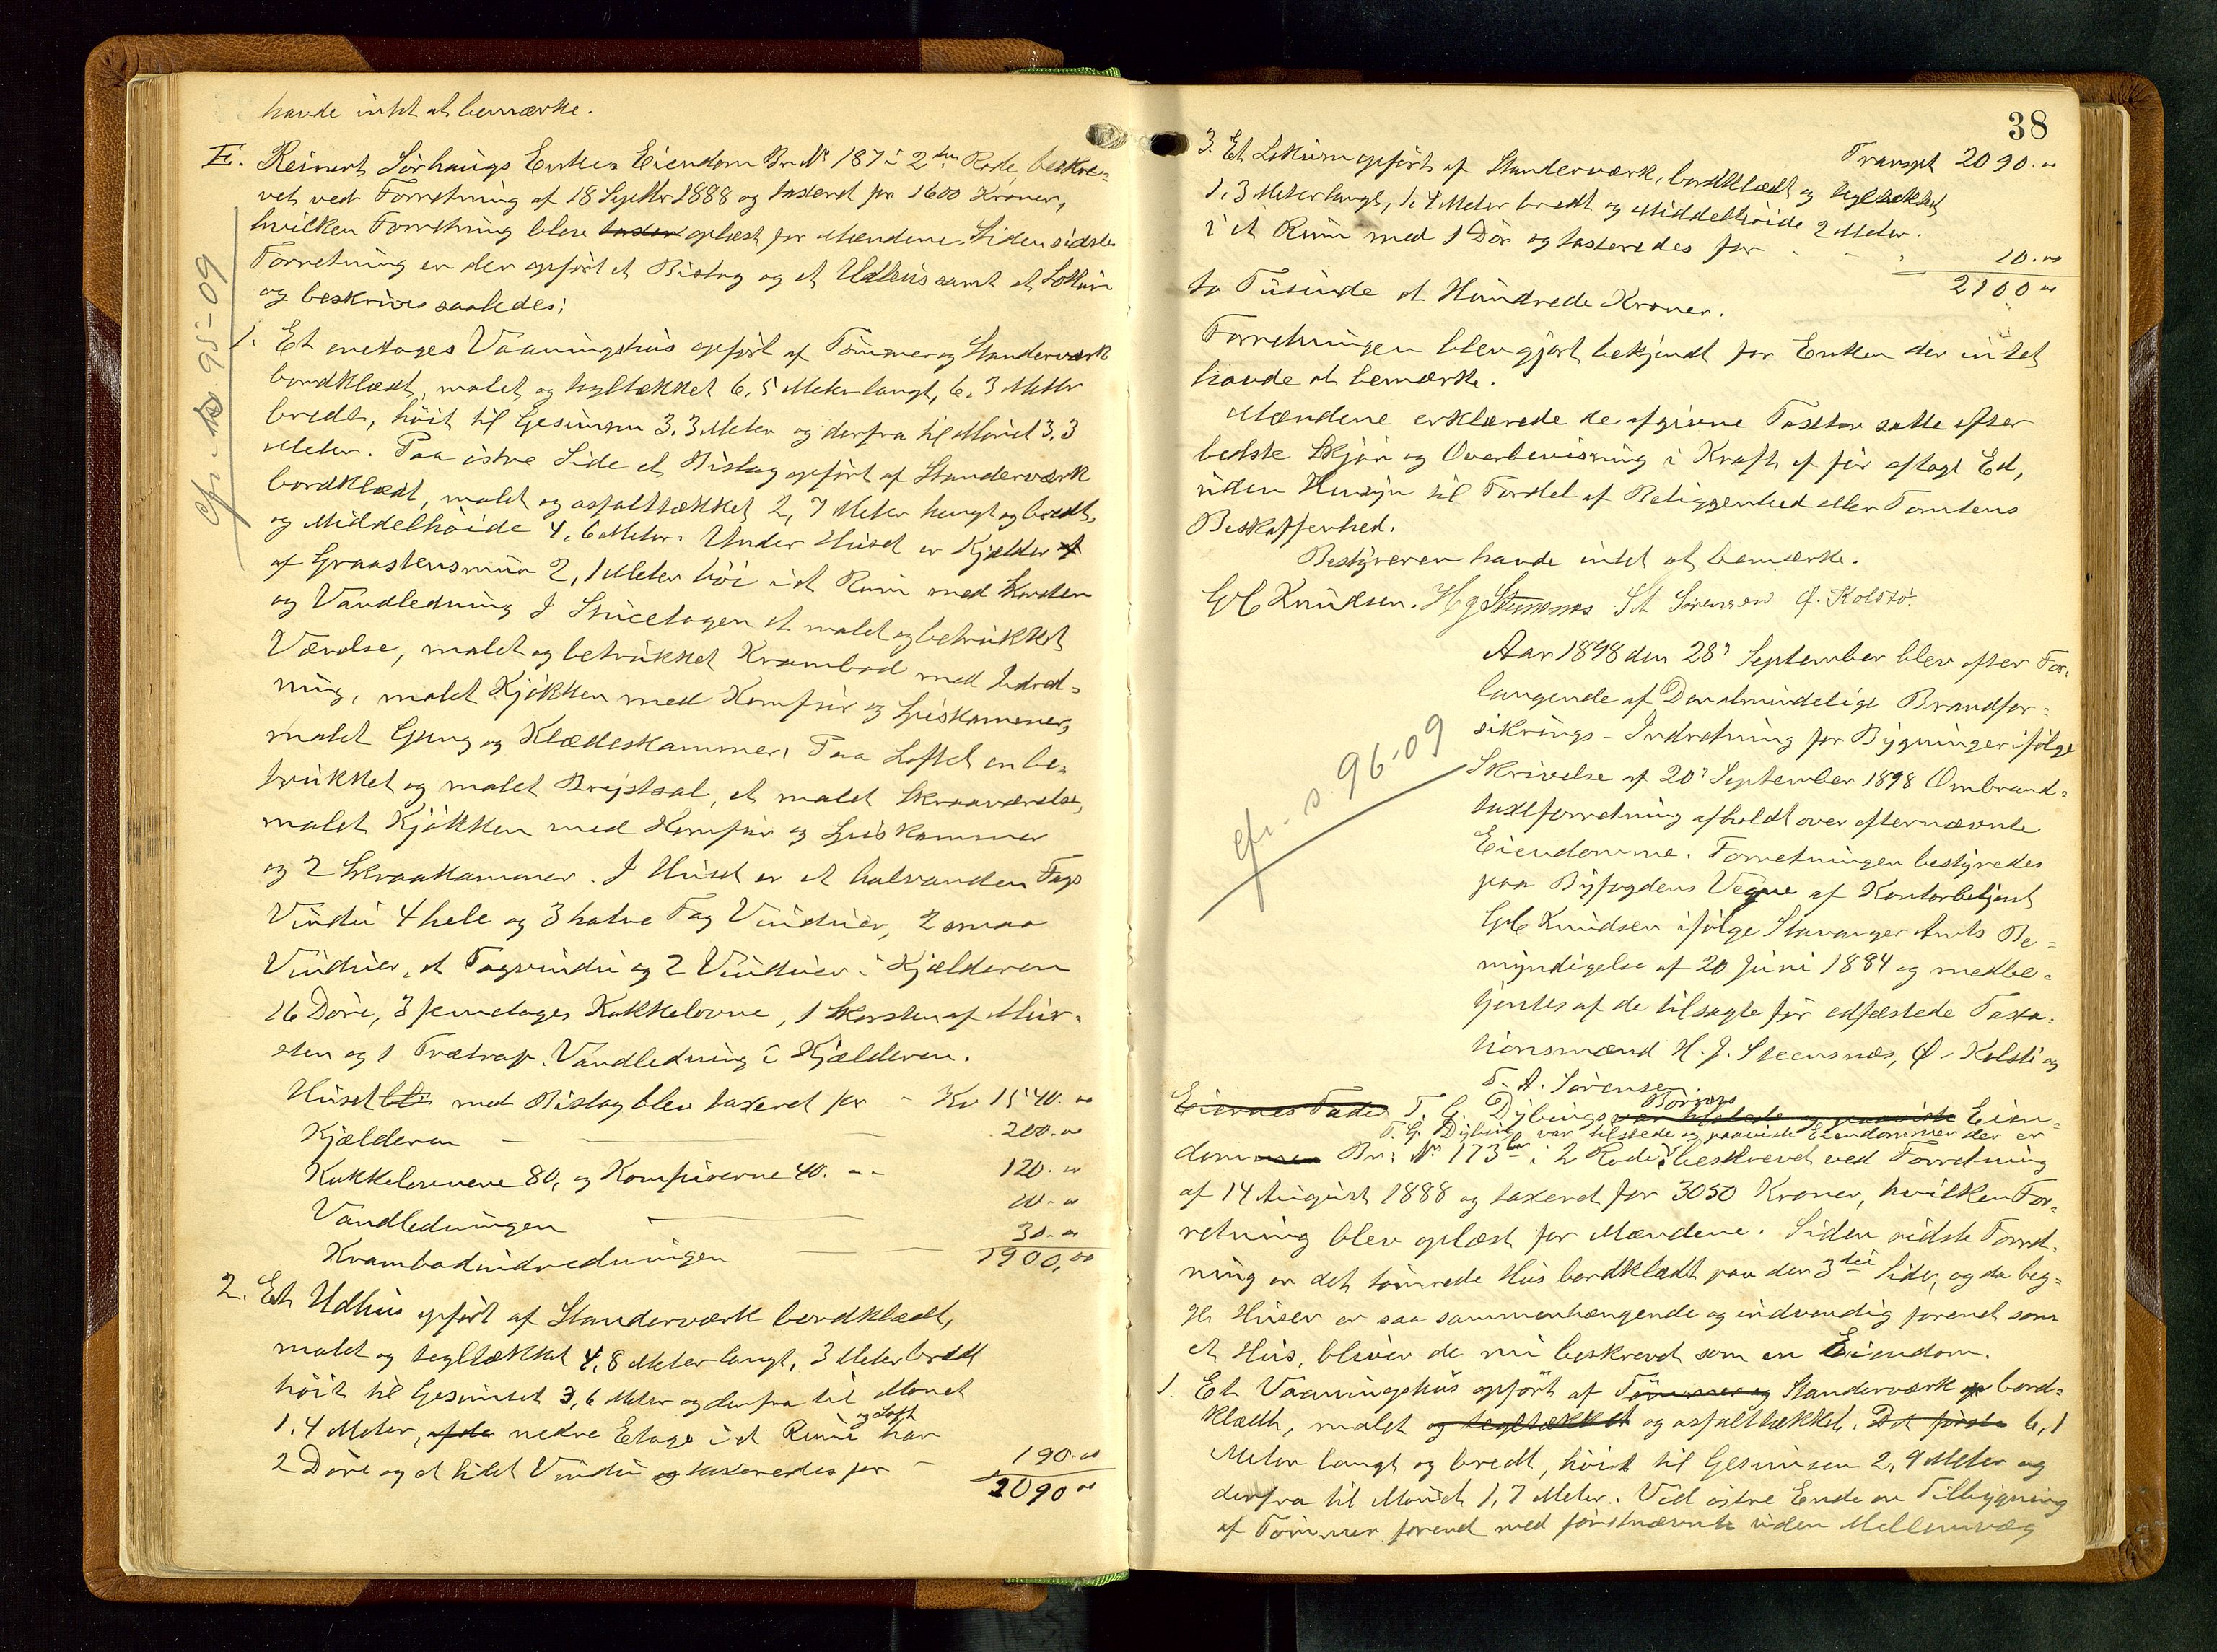 havde intet at bemærke.
E. Reinert Sørhaugs Enkes Eiendom Br. No 187 i 2den Rode, beskre-
vet ved Forretning af 18 Septbr 1888 og taxeret for 1600 Kroner,
hvilken Forretning blev taxer oplæst for Mændene. Siden sidste
Forretning er der opført et Bislag og et Udhus samt et Lokum
og beskrives saaledes:
cfr. s. 95-09
1. Et enetages Vaaningshus opført af Tømmer og Standerværk
bordklædt, malet og tegltækket 6,5 Meter langt, 6,3 Meter
bredt, høit til Gesimsen 3.3 Meter og derfra til Mønet 3.3
Meter. Paa østre Side et Bislag opført af Standerværk
bordklædt, malet og asfalttækket 2,7 Meter langt og bredt,
og Middelhøide 4,6 Meter. Under Huset er Kjælder af
af Graastensmur 2,1 Meter høi i et Rum med Skorsten
og Vandledning I Stueetagen et malet og betrukket
Værelse, malet og betrukket Krambod med Indred-
ning, malet Kjøkken med Komfur og Spiskammer,
malet Gang og Klædeskammer. Paa Loftet en be-
trukket og malet Brystsal, et malet Skraaværelse,
malet Kjøkken med Komfur og Spiskammer
og 2 Skraakammer. I Huset er et halvanden Fags
Vindu 4 hele og 3 halve Fag Vinduer, 2 smaa
Vinduer, et Tagvindu og 2 Vinduer i Kjælderen
16 Døre, 3 femetages Kakkelovne, 1 Skorsten af Mur-
sten og 1 Trætrap. Vandledning i Kjælderen.
Huset ble med Bislag blev taxeret for - Kr 1540.00
Kjælderen - 200.00
Kakkelovnene 80, og Komfurerne 40. 120.00
Vandledningen 10.00
Krambodindredningen 30.00
1900,00
2. Et Udhus opført af Standerværk bordklædt,
malet og tegltækket 4,8 Meter langt, 3 Meter bredt
høit til Gesimset 3,6 Meter og derfra til Mønet
1,4 Meter, nedre Etage i et Rum og Loft har
2 Døre og et lidet Vindu og taxeredes for - 190.00
2090.00
38
Transpt 2090.00
3. Et Lokum opført af Standerværk, bordklædt og tegltækket
1,3 Meter langt, 1,4 Meter bredt og Middelhøide 2 Meter.
i et Rum med 1 Dør og taxeredes for 10.00
2100.00
to Tusinde et Hundrede Kroner.
Forretningen blev gjort bekjendt for Enken der intet
havde at bemærke.
Mændene erklærede de afgivne Taxter satte efter
bedste Skjøn og Overbevisning i Kraft af før aflagt Ed,
uden Hensyn til Fordel af Beliggenhed eller Tomtens
Beskaffenhed.
Bestyreren havde intet at bemærke.
Knudsen. H J Steensnæs T A Sørensen Ø. Kolstø.
Aar 1898 den 28' September blev efter For-
langende af Den almindelige Brandfor-
sikrings-Indretning for Bygninger ifølge
Skrivelse af 20' September 1898 Ombrand-
taxtforretning afholdt over efternævnte
Eiendomme. Forretningen bestyredes
paa Byfogdens Vegne af Kontorbetjent
Knudsen ifølge Stavanger Amts Be-
myndigelse af 20 Juni 1884 og medbe-
tjentes af de tilsagte før edfæstede Taxa-
tionsmænd H. J. Steensnæs, Ø. Kolstø og
T. A. Sørensen.
cfr. s. 96-09
T. G. Dybings var tilstede og paaviste Eien-
T. G. Dybing var tilstede og paaviste Eiendommen der er
dommen Br: No 173 i 2 Rode, beskrevet ved Forretning
af 14 August 1888 og taxeret for 3050 Kroner, hvilken For-
retning blev oplæst for Mændene. Siden sidste Forret-
ning er det tømrede Hus bordklædt paa den 3die Side, og da beg-
ge Huser er saa sammenhængende og indvendig forenet som
et Hus, bliver de nu beskrevet som en Eiendom.
1. Et Vaaningshus opført af Tømmer og Standerværk bord-
klædt, malet og tegltækket og asfalttækket. Det første 6,1
Meter langt og bredt, høit til Gesimsen 2,9 Meter og
derfra til Mønet 1,7 Meter. Ved østre Ende en Tilbygning
af Tømmer forenet med førstnævnte uden Mellemvæg